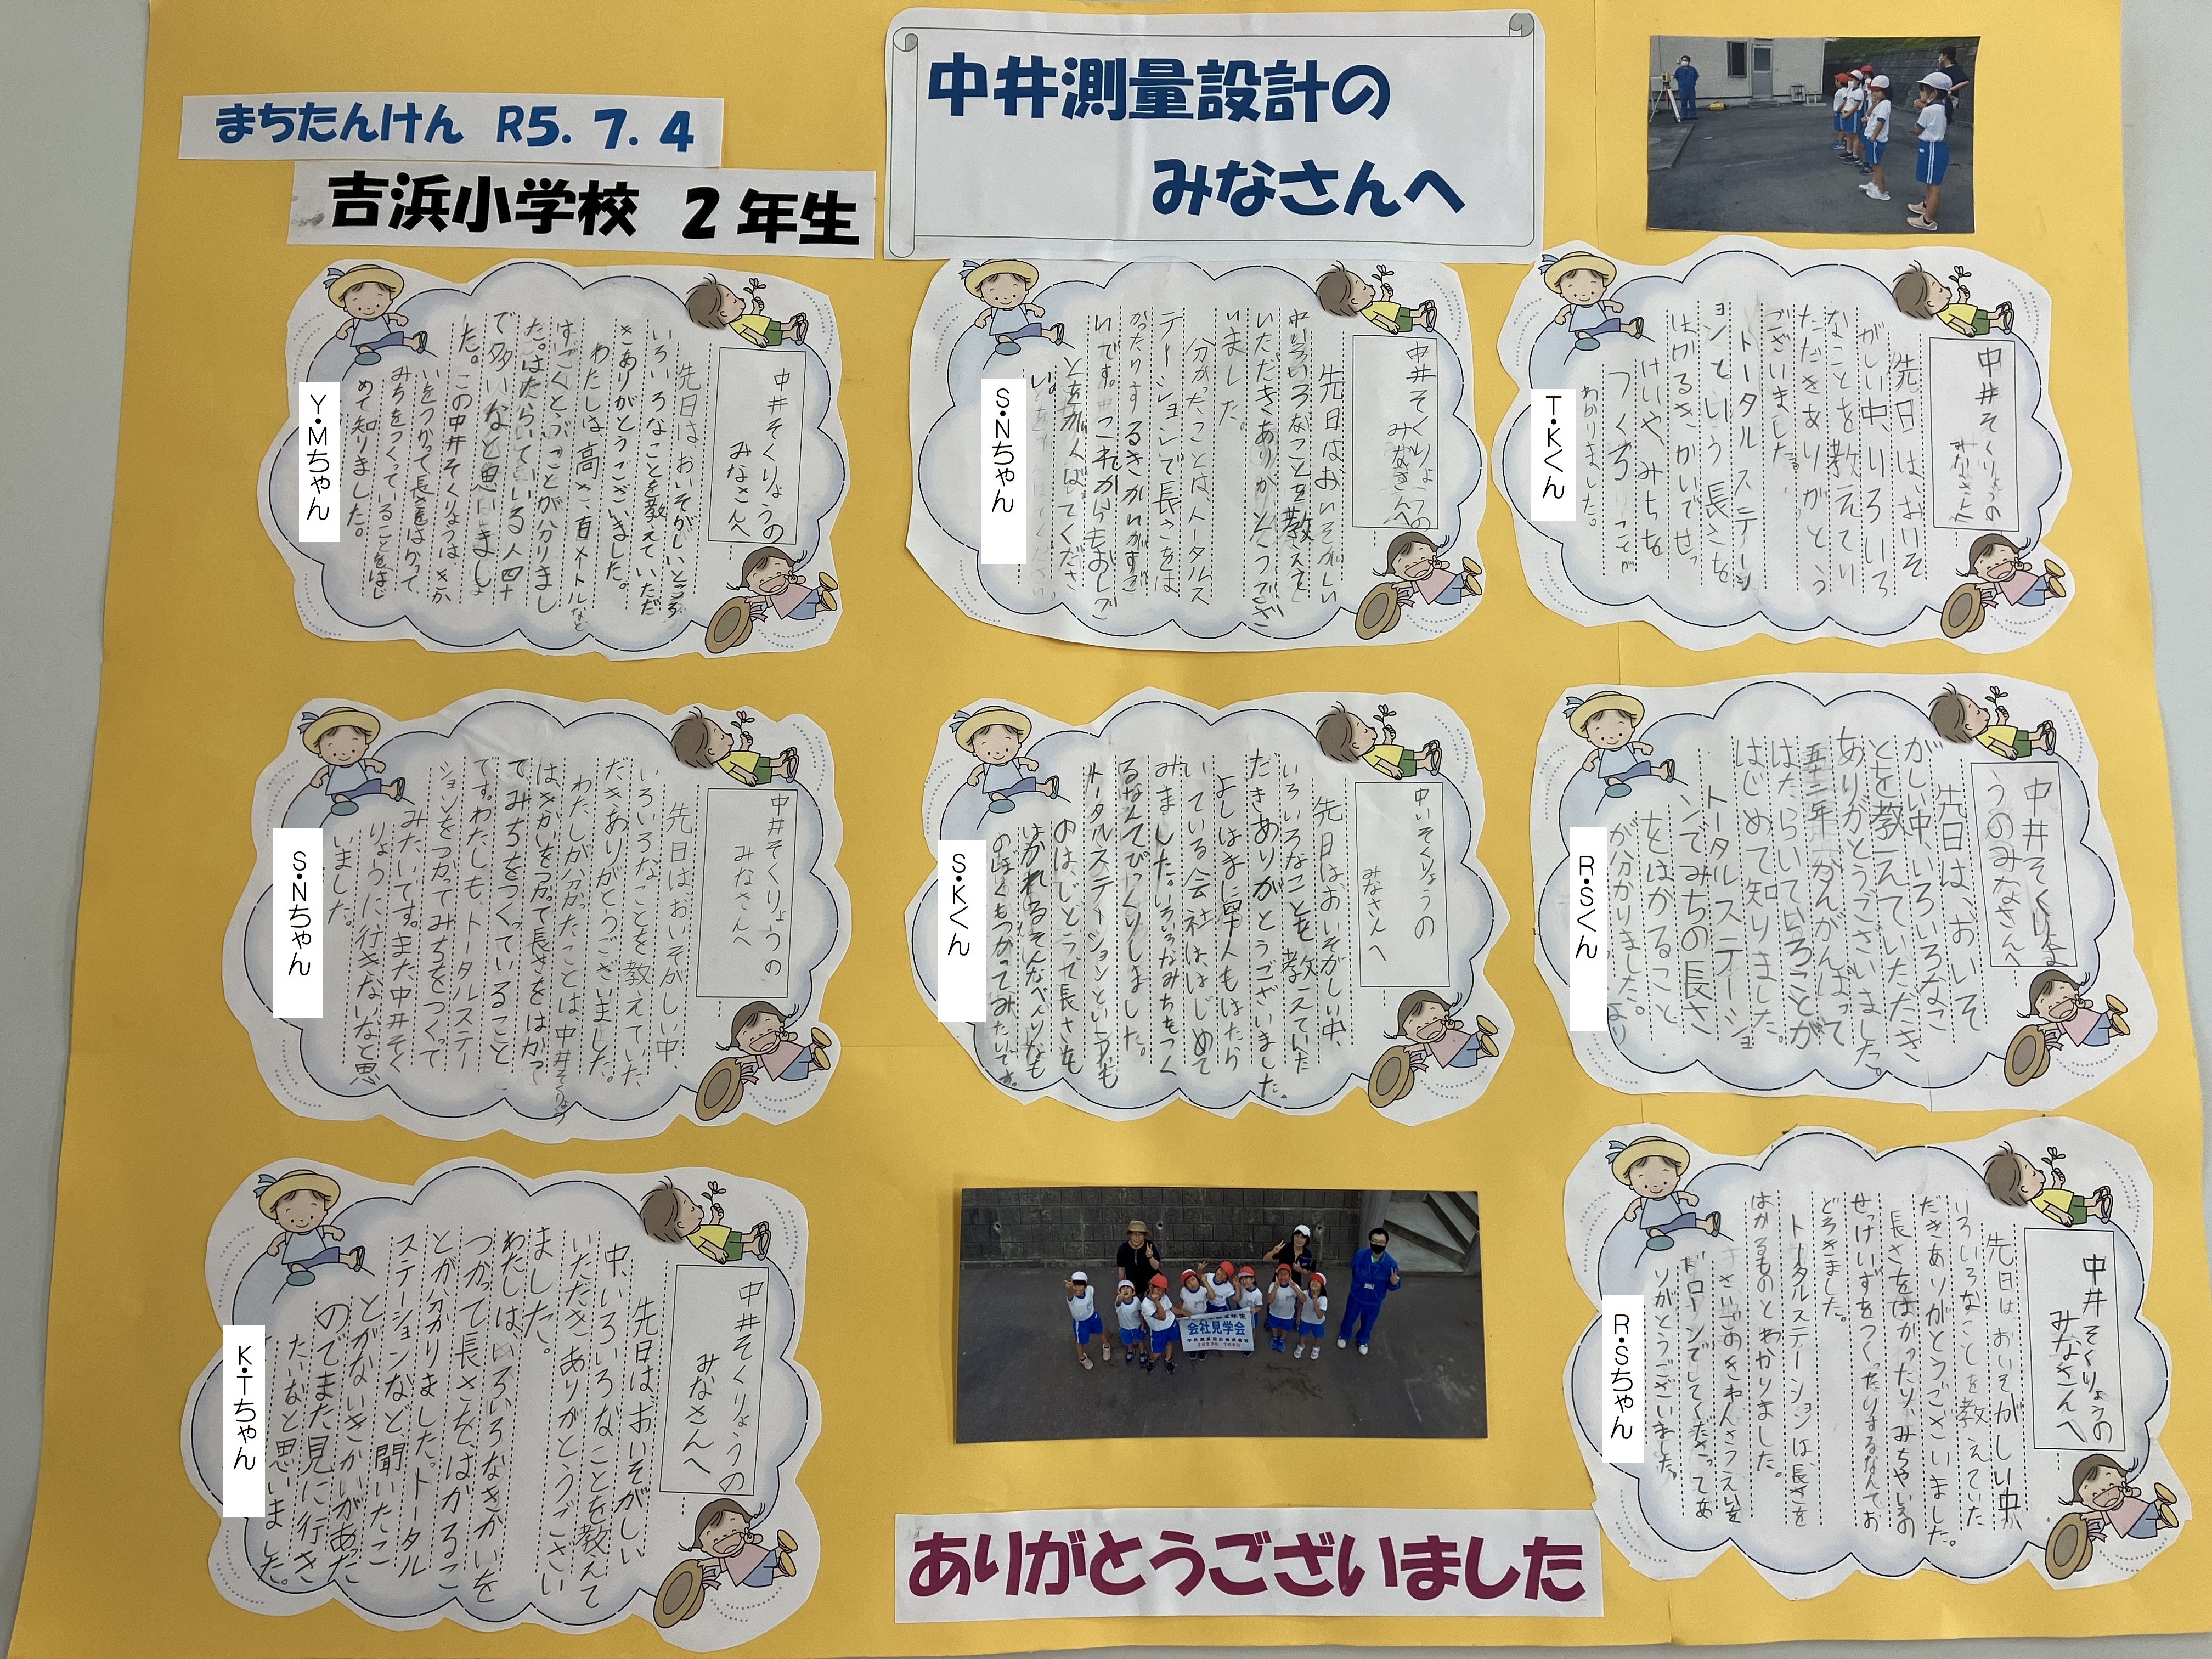 まちたんけん R5.7.4
吉浜小学校 2年生
中井測量設計の
みなさんへ
中井そくりょうの
みなさんへ
先日は、おいそ
がしい中、いろいろ
なことを教えてい
ただきありがとう
ございました。
トータルステーシ
ョンという長さを
はかるきかいでせっ
けいや、みちを
つくることが
わかりました。
T・Kくん
中井そくりょうの
みなさんへ
先日はおいそがしい
中いろいろなことを教えて
いただきありがとうござ
いました。
分かったことは、トータルス
テーションで長さをは
かったりするきかいがすご
いです。これからもおしご
とをがんばってくださ
い。
S・Nちゃん
中井そくりょうの
みなさんへ
先日はおいそがしいところ
いろいろなことを教えていただ
きありがとうございました。
わたしは高さ百メートルなど
すごくとぶことが分りまし
た。はたらいている人四十
で多いなと思いまし
た。この中井そくりょうはきか
いをつかって長さをはかって
みちをつくっていることをはじ
めて知りました。
Y・Mちゃん
中井そくりょ
うのみなさんへ
先日は、おいそ
がしい中、いろいろなこ
とを教えていただき
ありがとうございました。
五十二年かんがんばって
はたらいていることが
はじめて知りました。
トータルステーショ
ンでみちの長さ
をはかること
が分かりました。
R・Sくん
中いそくりょうの
みなさんへ
先日はおいそがしい中、
いろいろなことを教えていた
だきありがとうございました。
よしはまに早人もはたら
いている会社ははじめて
みました。いろいろなみちをつく
るなんてびっくりしました。
トータルステーションというども
のはじどうで長さを
はかれるそんなべんりなも
のぼくもつかってみたいです。
S・Kくん
中井そくりょうの
みなさんへ
先日はおいそがしい中、
いろいろなことを教えていた
だきありがとうございました。
わたしが分かったことは、中井そくりょう
はきかいをつかって長さをはかっ
てみちをつくっていること
です。わたしもトータルステー
ションをつかってみちをつくって
みたいです。また中井そく
りょうに行きたいなと思
いました。
S・Nちゃん
中井そくりょうの
みなさんへ
先日はおいそがしい中
いろいろなことを教えていた
だきありがとうございました。
長さをはかったり、みちやしろの
せっけいずをつくったりするなんてお
どろきました。
トータルステーションは、長さを
はかるものとわかりました。
さいごのきねんさつえいを
ドローンでしてくださってあ
りがとうございました。
R・Sちゃん
会社見学会
中井そくりょうの
みなさんへ
先日は、おいそがしい
中、いろいろなことを教えて
いただき、ありがとうござい
ました。
わたしは、いろいろなきかいを
つかって長さを、はかるこ
とが分かりました。トータル
ステーションなど聞いたこ
とがないきかいがあった
のでまた見に行き
たいなと思いました。
K・Tちゃん
ありがとうございました